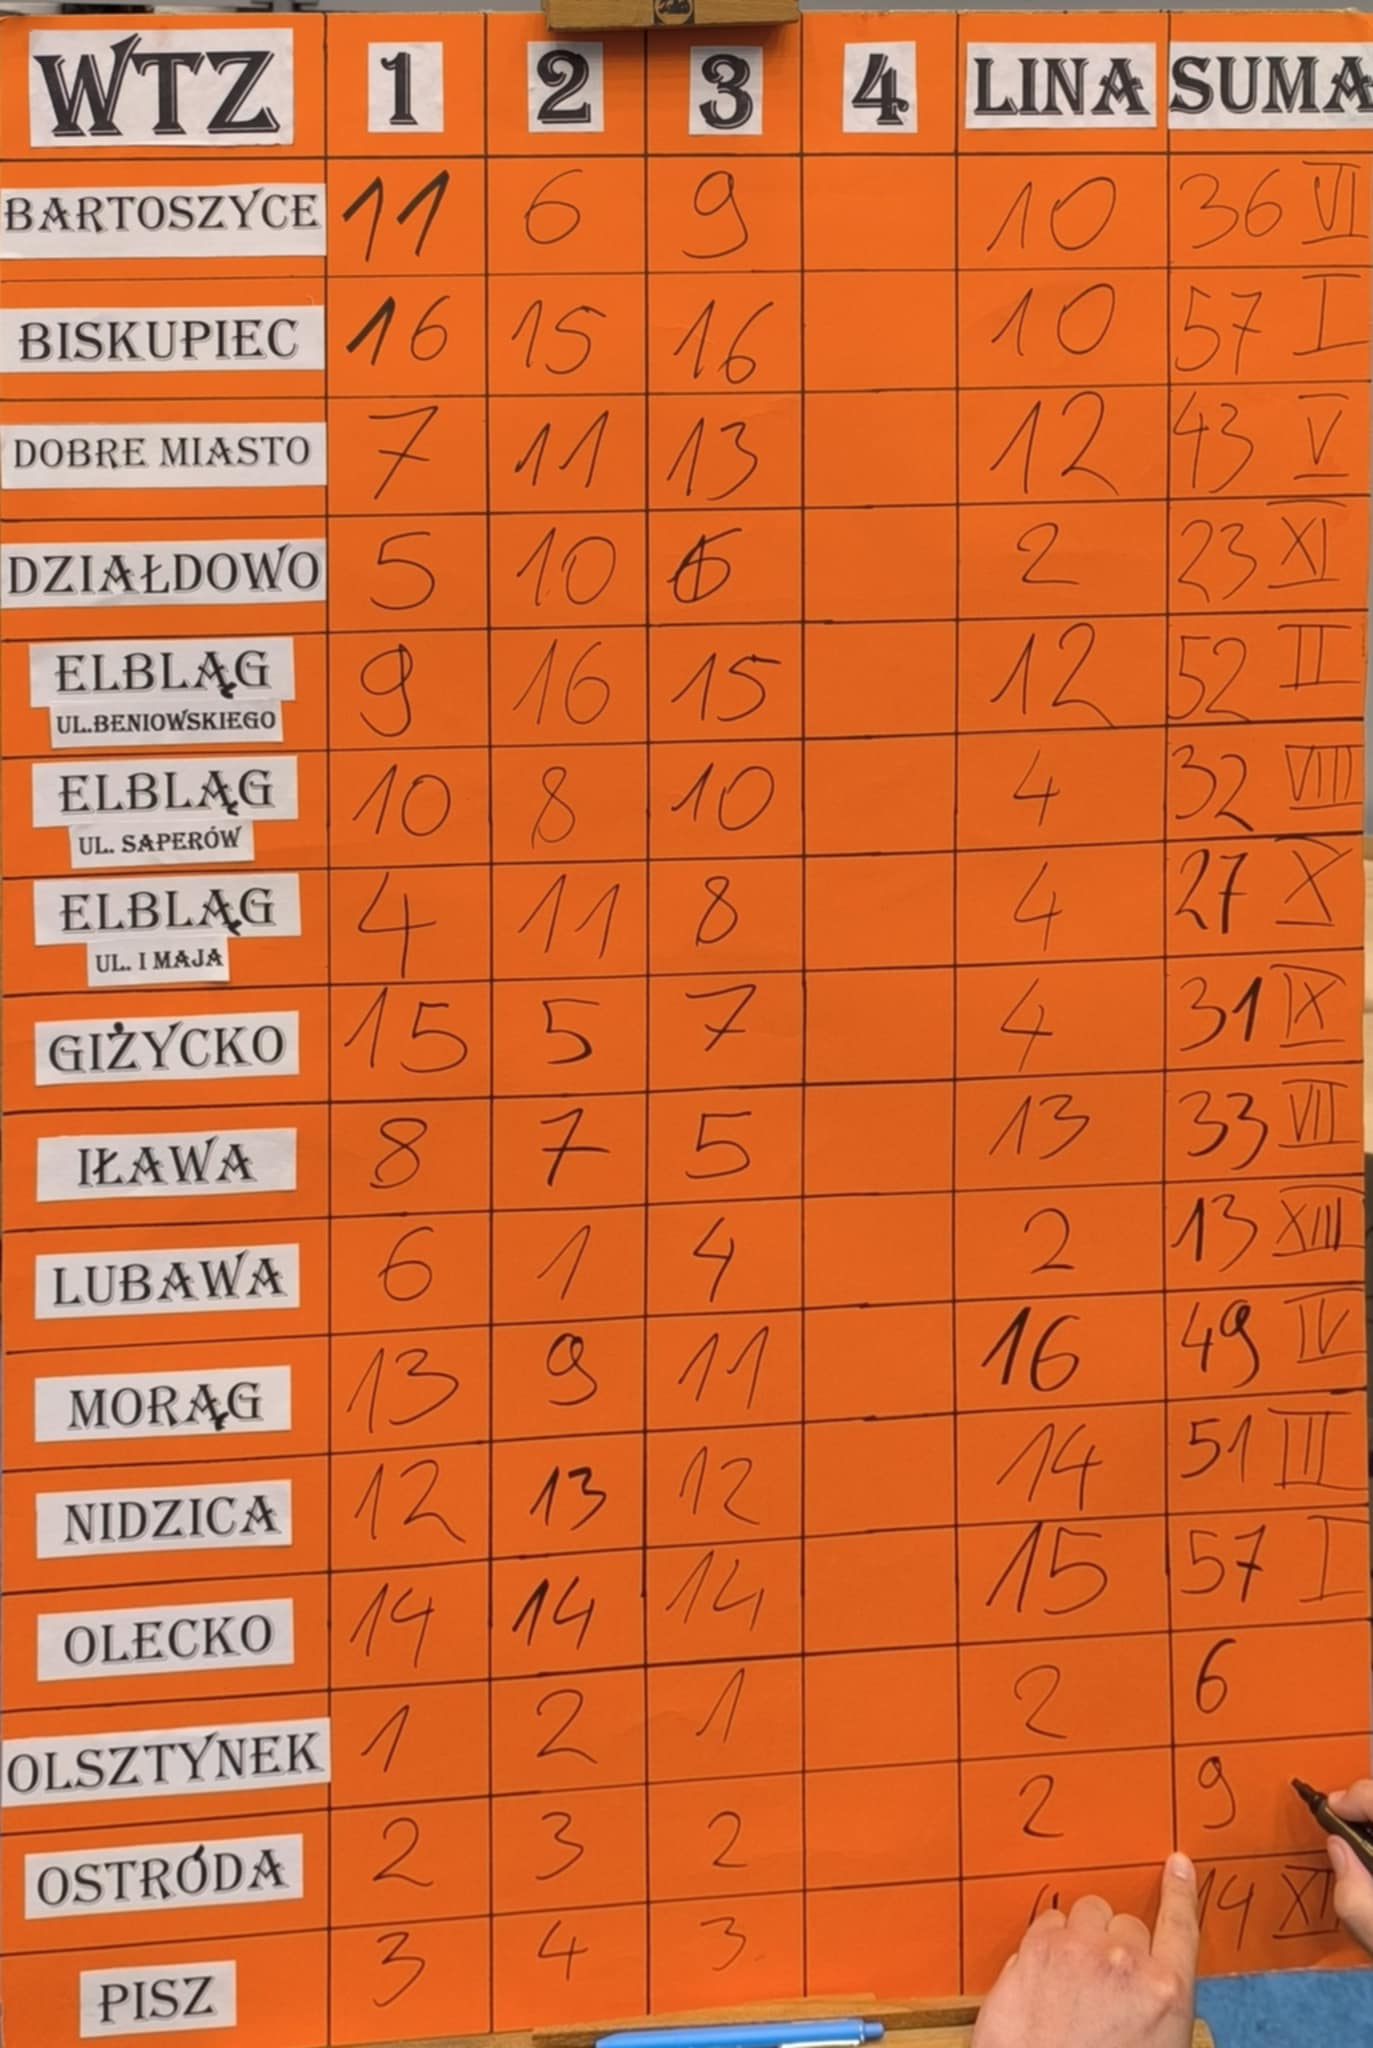 WTZ 1 2 3 4 LINA SUMA
BARTOSZYCE 11 6 9 10 36 VI
BISKUPIEC 16 15 16 10 57 I
DOBRE MIASTO 7 11 13 12 43 V
DZIAŁDOWO 5 10 6 2 23 XI
ELBLĄG
UL.BENIOWSKIEGO 9 16 15 12 52 II
ELBLĄG
UL. SAPERÓW 10 8 10 4 32 VIII
ELBLĄG
UL. I MAJA 4 11 8 4 27 X
GIŻYCKO 15 5 7 4 31 IX
IŁAWA 8 7 5 13 33 VII
LUBAWA 6 1 4 2 13 XIII
MORĄG 13 9 11 16 49 IV
NIDZICA 12 13 12 14 51 III
OLECKO 14 14 14 15 57 I
OLSZTYNEK 1 2 1 2 6
OSTRÓDA 2 3 2 2 9
PISZ 3 4 3 14